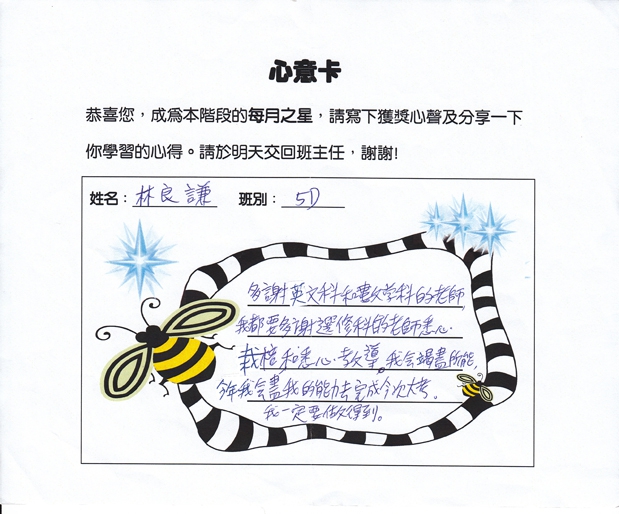 心意卡
恭喜您，成為本階段的每月之星，請寫下獲獎心聲及分享一下
你學習的心得。請於明天交回班主任，謝謝!
姓名：林良謙 班別：5D
多謝英文科和數學科的老師,
我都要多謝選修科的老師悉心.
栽棓和悉心教導。我会竭盡所能,
今年我会盡我的能力去完成今次大考。
我一定要做得到。